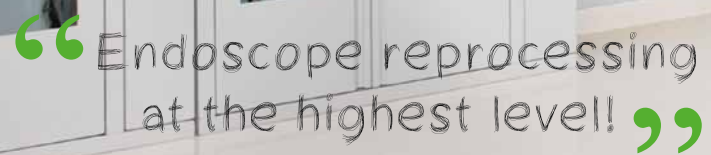 “Endoscope reprocessing
at the highest level!”